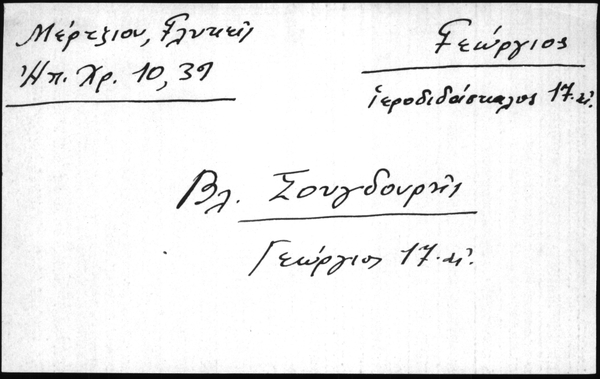 Μέρτζιου, Γλυκεῖς
Ἠπ. Χρ. 10, 39
Γεώργιος
ἱεροδιδάσκαλος 17. αἰ.
Βλ. Σουγδουρῆς
Γεώργιος 17. αἰ.